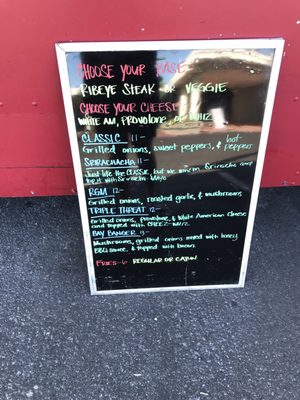 CHOOSE YOUR BASE
RIBEYE STEAK or VEGGIE
CHOOSE YOUR CHEESE
WHITE AM, PROVOLONE, or WHIZ
CLASSIC 11-
Grilled onions, sweet peppers, & hot peppers
SRIRACHACHA 11-
Just like the CLASSIC, but we in Sriracha and
top it with Sriracha Mayo
RGM 12-
Grilled onions, roasted garlic, & mushrooms
TRIPLE THREAT 12-
Grilled onions, provolone, & White American Cheese
and topped with CHEEZ-WHIZ
BAY BANGER 13-
Mushrooms, grilled onions mixed with honey
BBQ sauce, & topped with bacon
FRIES-6 REGULAR OR CAJUN